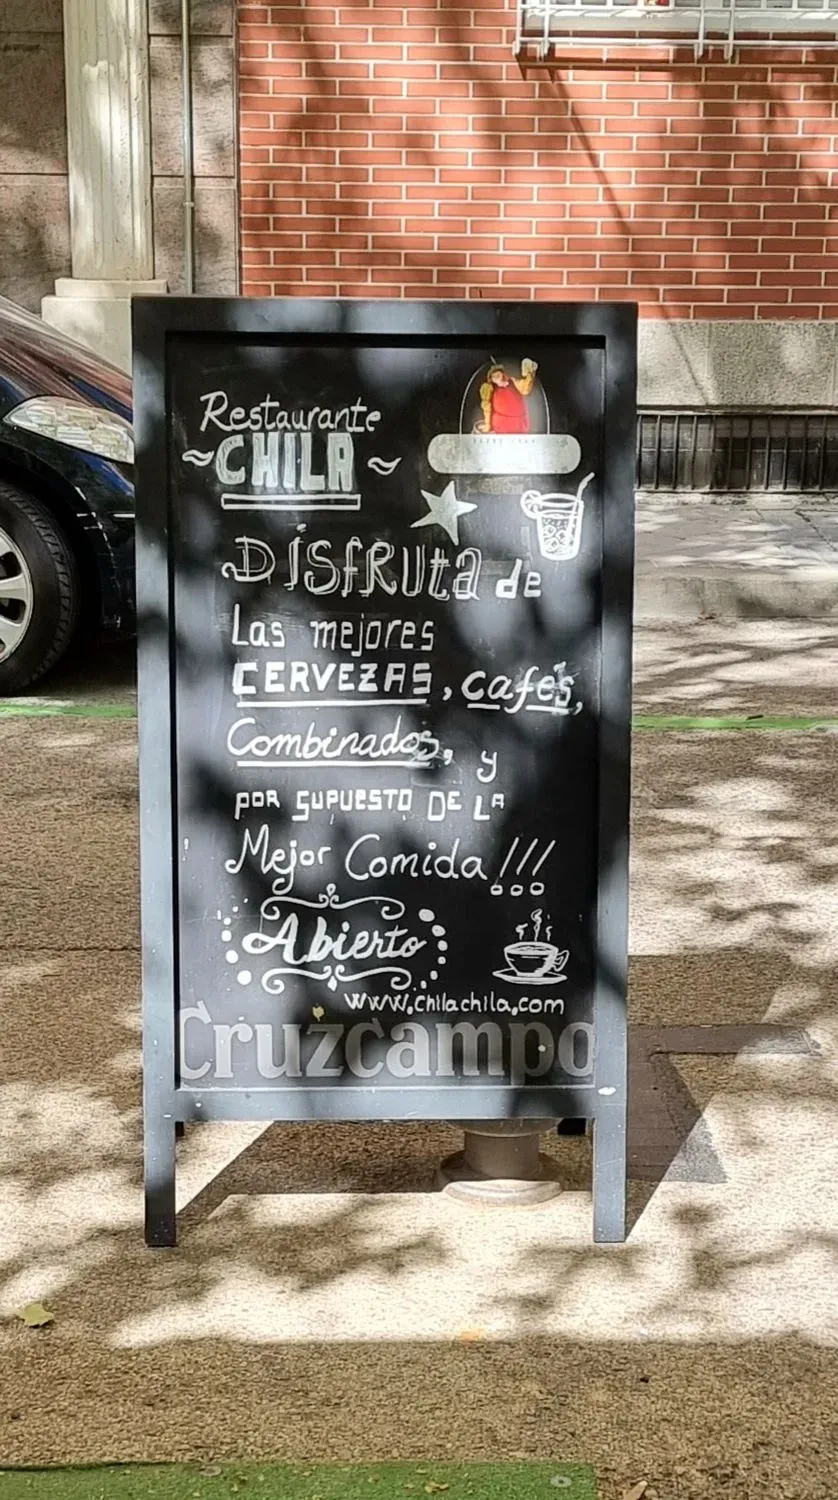 Restaurante
~CHILA~
DISFRUta de
Las mejores
CERVEZAS, cafés,
Combinados, y
POR SUPUESTO DE LA
Mejor Comida!!!
Abierto
www.chilachila.com
Cruzcampo